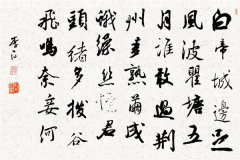 白帝城邊足
風波瞿塘五
月誰敢過荊
州麥熟繭成
蛾繰絲憶君
頭緒多撥谷
飛鳴奈妾何